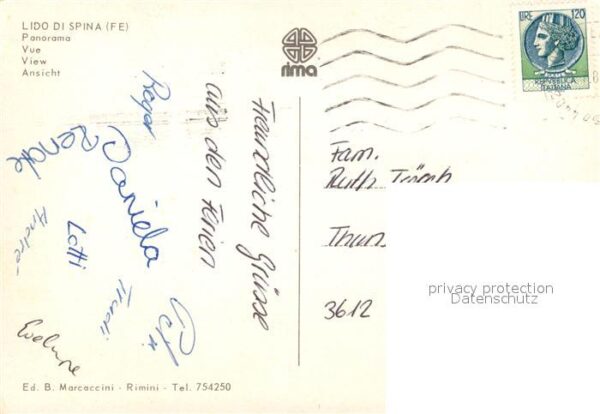 LIDO DI SPINA (FE)
Panorama
Vue
View
Ansicht
rima
LIRE 120
REPUBBLICA
ITALIANA
Freundliche Grüsse
aus den Ferien
Roger
Renate
Daniela
Lotti
André
Trudi
Evelyne
Fam.
Ruth
Thun
3612
privacy protection
Datenschutz
Ed. B. Marcaccini - Rimini - Tel. 754250